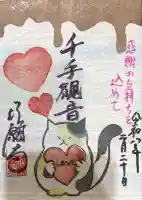 感謝の気持ちを
込めて
令和八年
二月二十日
千手観音